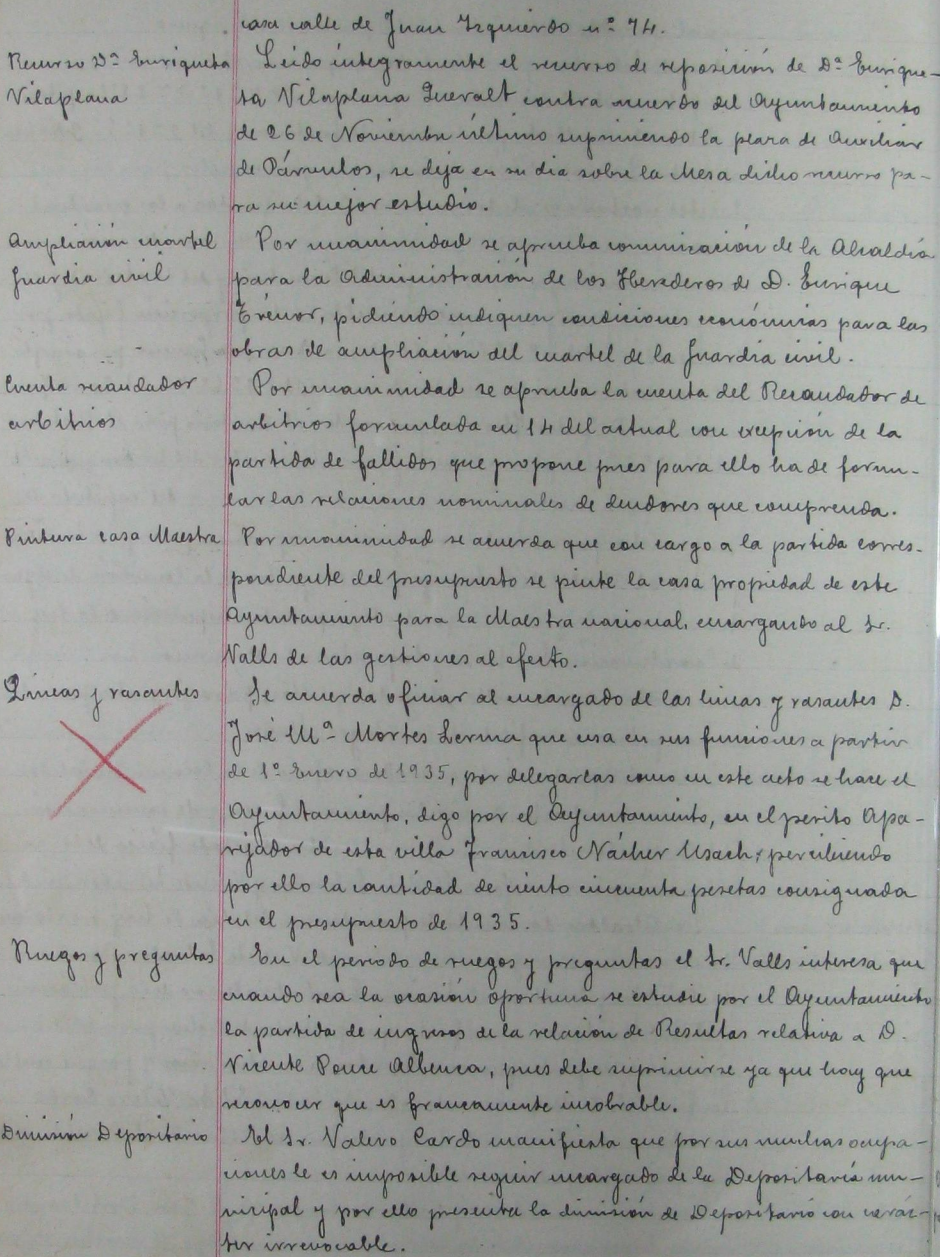 casa calle de Juan Izquierdo nº 74.
Recurso Dª Enriqueta
Vilaplana
Leido integramente el recurso de reposición de Dª Enrique-
ta Vilaplana Queralt contra acuerdo del Ayuntamiento
de 26 de Noviembre último suprimiendo la plaza de Auxiliar
de Párvulos, se deja en su dia sobre la Mesa dicho recurso pa-
ra su mejor estudio.
Ampliación cuartel
Guardia civil
Por unanimidad se aprueba comunicación de la Alcaldía
para la Administración de los Herederos de D. Enrique
Trénor, pidiendo indiquen condiciones económicas para las
obras de ampliación del cuartel de la Guardia civil.
Cuenta recaudador
arbitrios
Por unanimidad se aprueba la cuenta del Recaudador de
arbitrios formulada en 14 del actual con excepción de la
partida de fallidos que propone pues para ello ha de formu-
lar las relaciones nominales de deudores que comprenda.
Pintura casa Maestra
Por unanimidad se acuerda que con cargo a la partida corres-
pondiente del presupuesto se pinte la casa propiedad de este
Ayuntamiento para la Maestra nacional, encargando al Sr.
Valls de las gestiones al efecto.
Líneas y rasantes
Se acuerda oficiar al encargado de las lineas y rasantes D.
José Mª Mortes Lerma que cesa en sus funciones a partir
de 1º Enero de 1935, por delegarlas como en este acto se hace el
Ayuntamiento, digo por el Ayuntamiento, en el perito Apa-
rejador de esta villa Francisco Nácher Usach, percibiendo
por ello la cantidad de ciento cincuenta pesetas consignada
en el presupuesto de 1935.
Ruegos y preguntas
En el periodo de ruegos y preguntas el Sr. Valls interesa que
cuando sea la ocasión oportuna se estudie por el Ayuntamiento
la partida de ingresos de la relación de Resultas relativa a D.
Vicente Ponce Albenca, pues debe suprimirse ya que hay que
reconocer que es francamente incobrable.
Dimisión Depositario
El Sr. Valero Cardo manifiesta que por sus muchas ocupa-
ciones le es imposible seguir encargado de la Depositaría mu-
nicipal y por ello presenta la dimisión de Depositario con carác-
ter irrevocable.